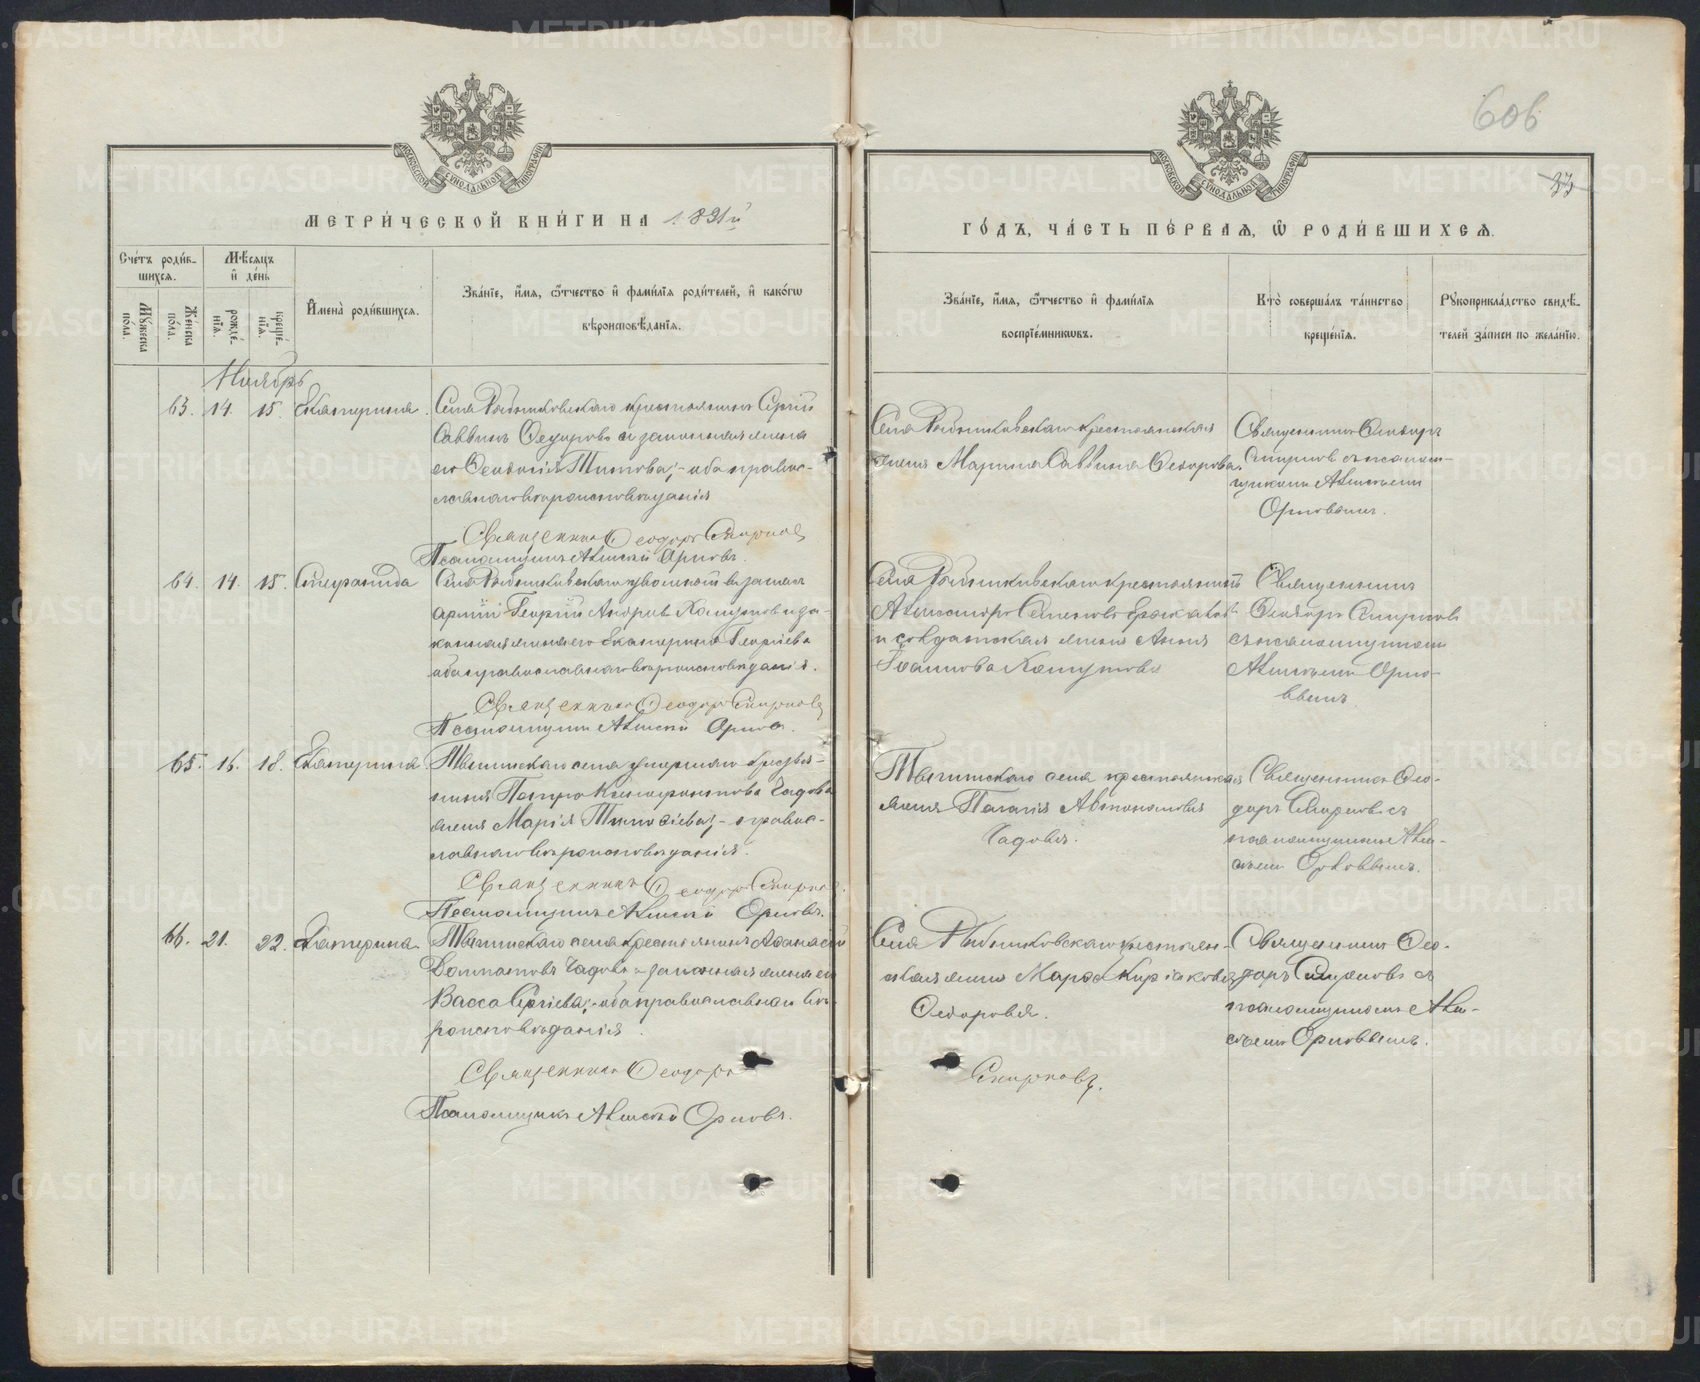 606
33
МЕТРИ́ЧЕСКОЙ КНИ́ГИ НА 1891й
ГО́ДЪ, ЧА́СТЬ ПЕ́РВАЯ, Ѡ РОДИ́ВШИХСЯ.
Сче́тъ роди́в-
шихся.
Мѣ́сяцъ
и де́нь
Му́жеска
по́ла.
Же́нска
по́ла.
рожде́-
нїя.
креще́-
нїя.
Имена̀ роди́вшихся.
Зва́нїе, и́мя, ѻ́тчество и фами́лїя роди́телей, и како́гѡ
вѣроисповѣ́данїя.
Зва́нїе, и́мя, ѻ́тчество и фами́лїя
воспрїе́мникѡвъ.
Кто̀ соверша́лъ та́инство
креще́нїя.
Рꙋкоприкла́дство свидѣ́-
телей за́писи по жела́нїю.
Ноябрь
63. 14. 15. Екатерина.
Села Рыбниковскаго крестьянинъ Сергiй
Саввинъ Ѳедоровъ и законная жена
его Ѳеодосiя Титова; оба право-
славнаго вѣроисповѣданiя
Священникъ Ѳеодоръ Смирновъ
Псаломщикъ Алексѣй Орловъ.
Села Рыбниковскаго крестьянская
жена Марина Саввина Ѳедорова.
Священникъ Ѳеодоръ
Смирновъ съ псалом-
щикомъ Алексѣемъ
Орловымъ.
64. 14. 15.
Села Рыбниковскаго уволенной въ запасъ
армiи Георгiй Андреевъ и за-
конная жена его Екатерина Георгiева
оба православнаго вѣроисповѣданiя.
Священникъ Ѳеодоръ Смирновъ
Псаломщикъ Алексѣй Орловъ.
Села Рыбниковскаго крестьянинъ
Александръ Семеновъ
и солдатская жена Анна
Iоаннова
Священникъ
Ѳеодоръ Смирновъ
съ псаломщикомъ
Алексѣемъ Орло-
вымъ.
65. 16. 18. Екатерина.
села умершаго крестья-
нина Петра Чадова
жена Марiя Тимоѳiева; православ-
славнаго вѣроисповѣданiя.
Священникъ Ѳеодоръ Смирновъ.
Псаломщикъ Алексѣй Орловъ.
села крестьянская
жена Пелагiя Автономова
Чадова.
Священникъ Ѳео-
доръ Смирновъ съ
псаломщикомъ Алек-
сѣемъ Орловымъ.
66. 21. 22. Екатерина.
села крестьянинъ Аѳанасiй
Чадовъ и законная жена его
Васса Сергiева; оба православнаго вѣ-
роисповѣданiя.
Священникъ Ѳеодоръ
Псаломщикъ Алексѣй Орловъ.
Села Рыбниковскаго крестьян-
ская жена Марѳа Кирiакова
Ѳедорова.
Смирновъ.
Священникъ Ѳео-
доръ Смирновъ съ
псаломщикомъ Алек-
сѣемъ Орловымъ.
METRIKI.GASO-URAL.RU